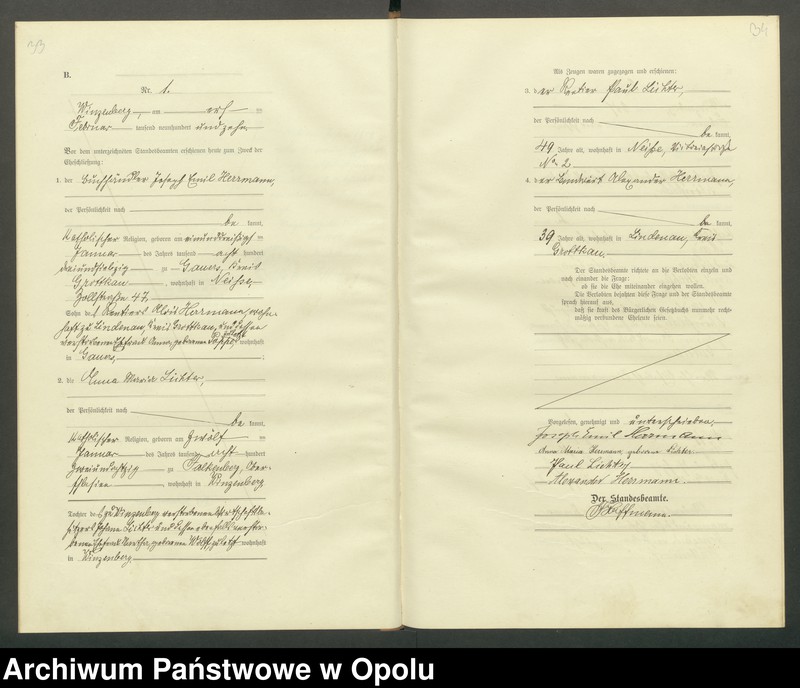 33
B.
Nr. 1.
Winzenberg, am
Februar tausend neunhundert und zehn
Vor dem unterzeichneten Standesbeamten erschienen heute zum Zweck der
Eheschließung:
1. der Buchhändler Joseph Emil Herrmann,
der Persönlichkeit nach
be kannt,
katholischer Religion, geboren am einunddreißigsten
Januar des Jahres tausend acht hundert
dreiundsiebzig zu Gauers, Kreis
Grottkau, wohnhaft in Neisse,
Zollstraße 47.
Sohn des Rentiers Alois Herrmann, wohn-
haft zu Lindenau, Kreis Grottkau, und dessen
verstorbenen Ehefrau Anna, geborenen Poppe, zuletzt wohnhaft
in Gauers,
2. die Anna Maria Lichter,
der Persönlichkeit nach
be kannt,
katholischer Religion, geboren am zwölf
Januar des Jahres tausend acht hundert
zweiundachtzig zu Falkenberg, Ober-
schlesien, wohnhaft in Winzenberg
Tochter des zu Winzenberg verstorbenen Wirtschaftsbe-
sitzers Johann Lichter und dessen ebenfalls verstor-
benen Ehefrau Bertha, geborenen Wolff, zuletzt wohnhaft
in Winzenberg
34
Als Zeugen waren zugezogen und erschienen:
3. der Rentier Paul Lichter,
der Persönlichkeit nach
be kannt,
49 Jahre alt, wohnhaft in Neisse,
No. 2
4. der Landwirt Alexander Herrmann,
der Persönlichkeit nach
be kannt,
39 Jahre alt, wohnhaft in Lindenau, Kreis
Grottkau.
Der Standesbeamte richtete an die Verlobten einzeln und
nach einander die Frage:
ob sie die Ehe miteinander eingehen wollen.
Die Verlobten bejahten diese Frage und der Standesbeamte
sprach hierauf aus,
daß sie kraft des Bürgerlichen Gesetzbuchs nunmehr recht-
mäßig verbundene Eheleute seien.
Vorgelesen, genehmigt und unterschrieben.
Joseph Emil Herrmann
Anna Maria Herrmann, geborene Lichter
Paul Lichter
Alexander Herrmann
Der Standesbeamte.
Archiwum Państwowe w Opolu